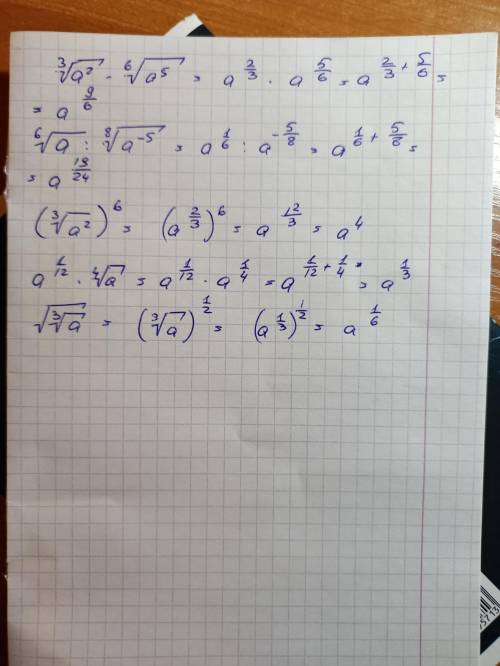 ∛a² · ⁶√a⁵ = a^(2/3) · a^(5/6) = a^(2/3 + 5/6) =
= a^(9/6)
⁶√a : ⁸√a⁻⁵ = a^(1/6) : a^(-5/8) = a^(1/6 + 5/8) =
= a^(19/24)
(∛a²)⁶ = (a^(2/3))⁶ = a^(12/3) = a⁴
a^(1/12) · ⁴√a = a^(1/12) · a^(1/4) = a^(1/12 + 1/4) = a^(1/3)
√∛a = (∛a)^(1/2) = (a^(1/3))^(1/2) = a^(1/6)